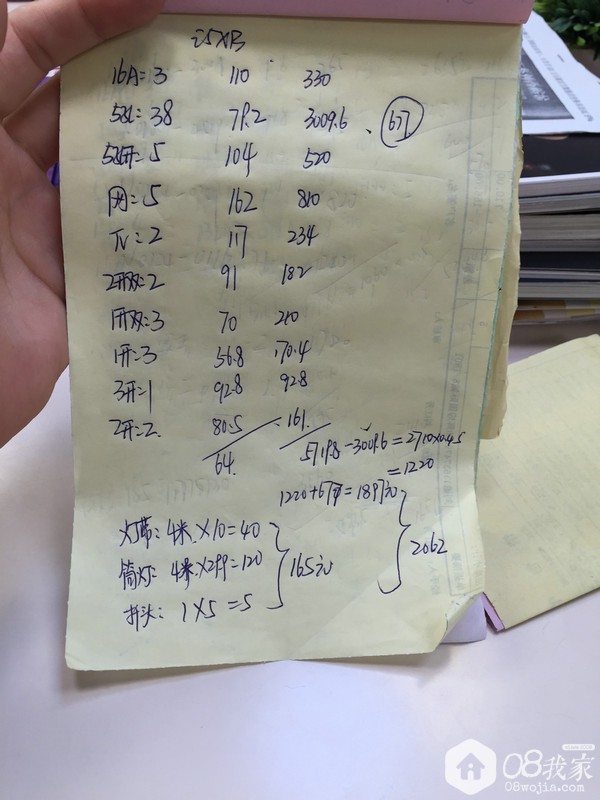 16A=3 110 330
五孔=38 79.2 3009.6 、 677
五孔开=5 104 520
网=5 162 810
TV=2 117 234
2开双=2 91 182
1开双=3 70 210
1开=3 56.8 170.4
3开=1 92.8 92.8
2开=2 80.5 161.
64.
5719.8-3009.6=2710×0.45
=1220
1220+677=1897元
灯带:4米×10=40
筒灯: =120 165元 2062
拼头: 1×5=5
08我家
08wojia.com